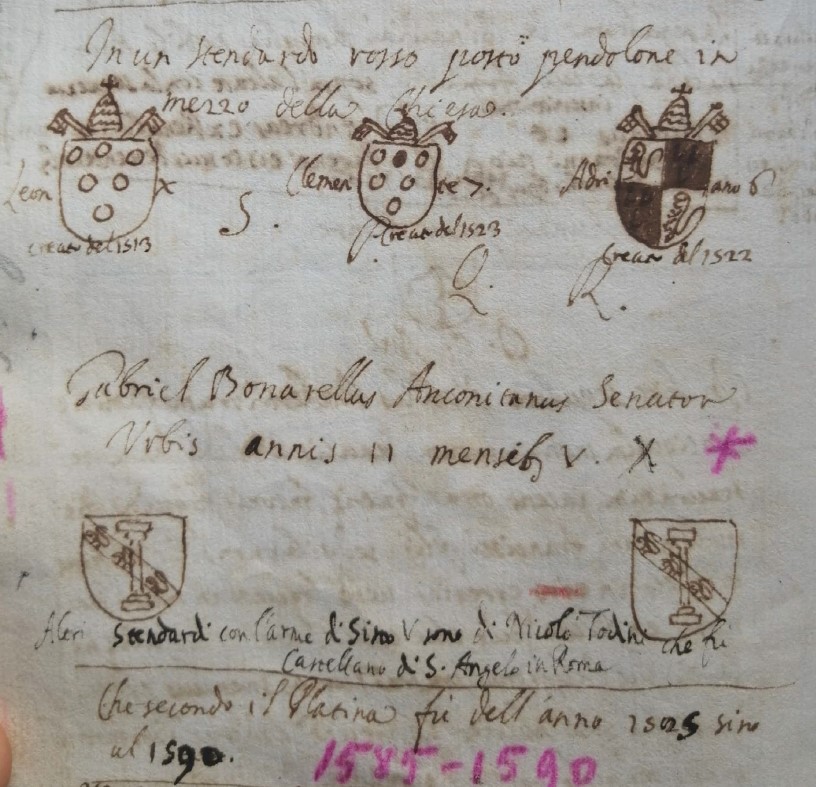 In un stendardo rosso posto pendolone in
mezzo della Chiesa.
Leon X
creato del 1513
S.
Clemente 7.
Creato del 1523
Adriano 6
Creato del 1522
Q. R.
Gabriel Bonarellus Anconitanus Senator
Vrbis annis II mensib V. X *
Altri stendardi con l'arme di Sisto V sono di Nicolò Todini che fù
Castellano di S. Angelo in Roma
Che secondo il Platina fù dell'anno 1585 sino
al 1590.
1585-1590